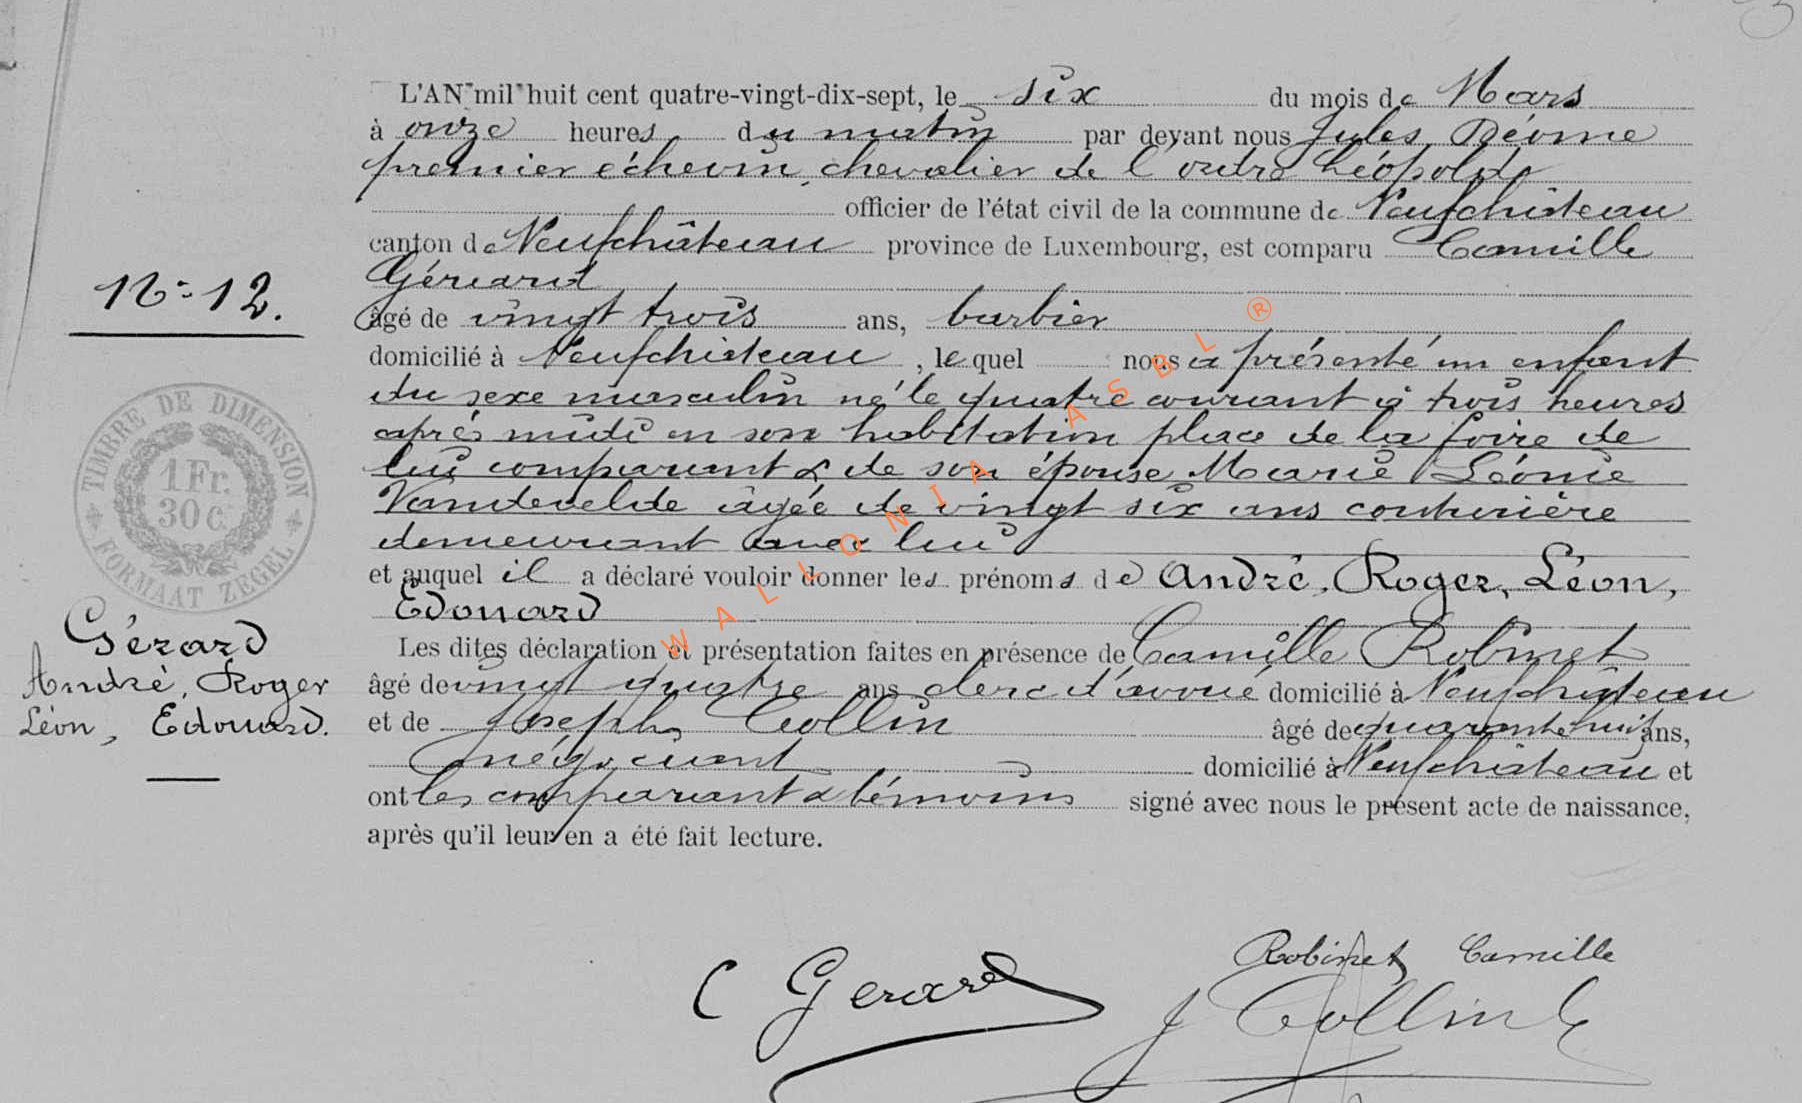 L'AN mil huit cent quatre-vingt-dix-sept, le six du mois de Mars
à onze heures du matin par devant nous Jules Déome
premier échevin, chevalier de l'ordre Léopold
officier de l'état civil de la commune de Neufchâteau
canton de Neufchâteau province de Luxembourg, est comparu Camille
Gérard
N° 12.
âgé de vingt trois ans, barbier
domicilié à Neufchâteau, lequel nous a présenté un enfant
du sexe masculin né le quatre courant à trois heures
après midi en son habitation place de la foire de
lui comparant & de son épouse Marie Léonie
Vandevelde âgée de vingt six ans couturière
demeurant avec lui
et auquel il a déclaré vouloir donner les prénoms de André, Roger, Léon,
Edouard
TIMBRE DE DIMENSION
1 Fr.
30 C.
FORMAAT ZEGEL
Gérard
André, Roger
Léon, Edouard.
Les dites déclaration et présentation faites en présence de Camille Robinet
âgé de vingt quatre ans clerc d'avoué domicilié à Neufchâteau
et de Joseph Collin âgé de quarante huit ans,
négociant domicilié à Neufchâteau et
ont les comparant & témoins signé avec nous le présent acte de naissance,
après qu'il leur en a été fait lecture.
C Gerard
Robinet Camille
J Collin
WALLONIA ASBL ®